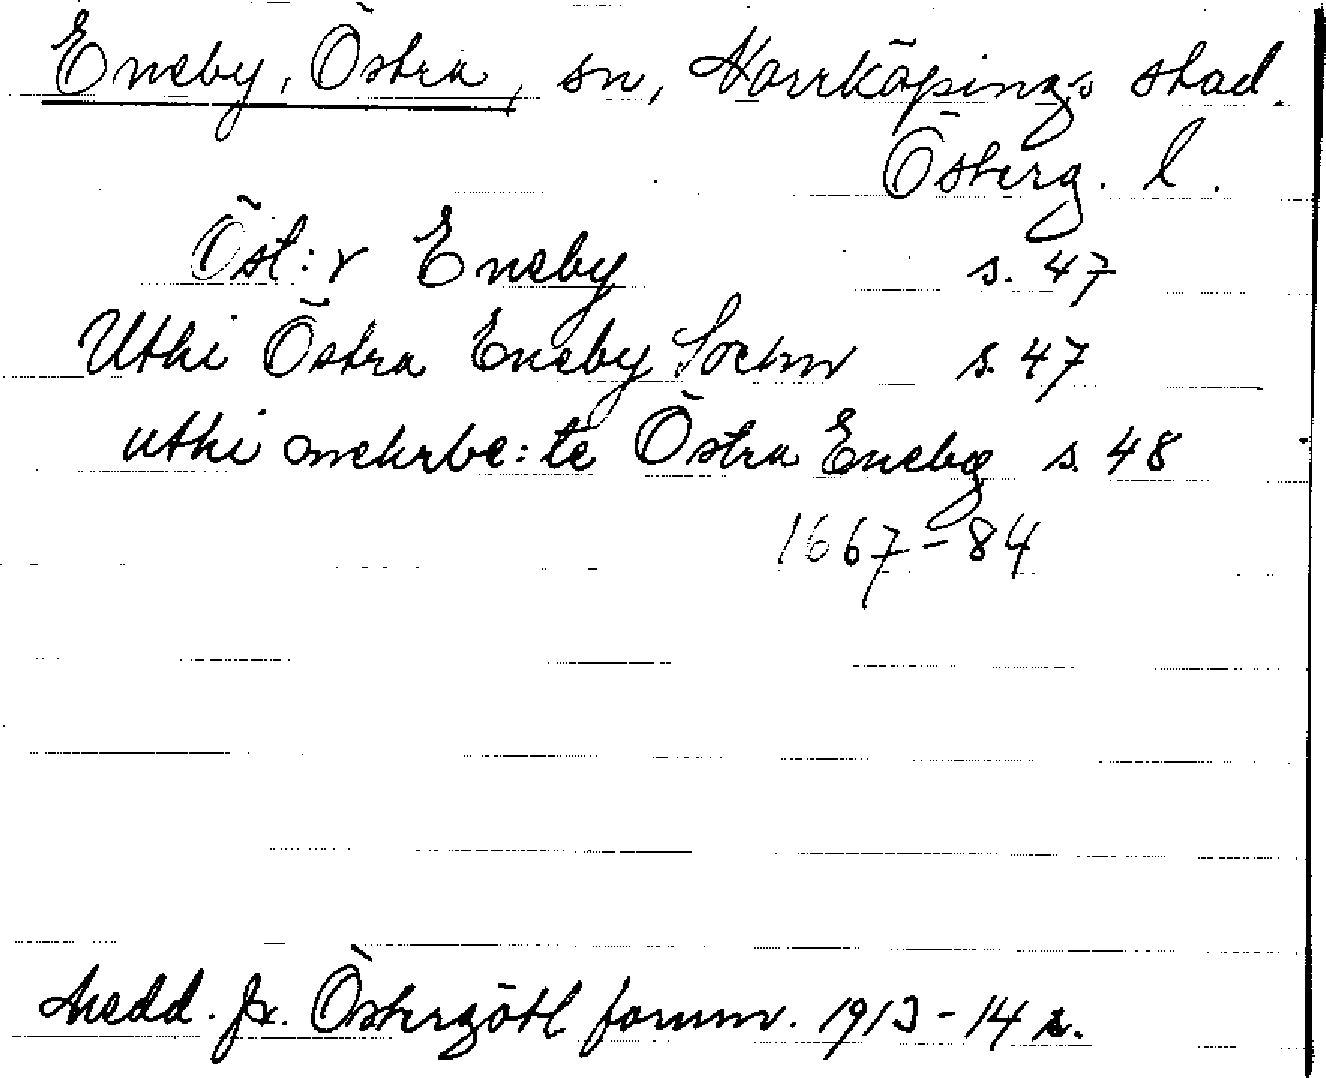 Eneby, Östra, sn, Norrköpings stad.
Österg. l.
Öst:r Eneby s. 47
Uthi Östra Eneby Socknn s. 47
uthi mehrbe:te Östra Eneby s. 48
1667-84
Medd. fr. Östergötl fornm. 1913-14 s.